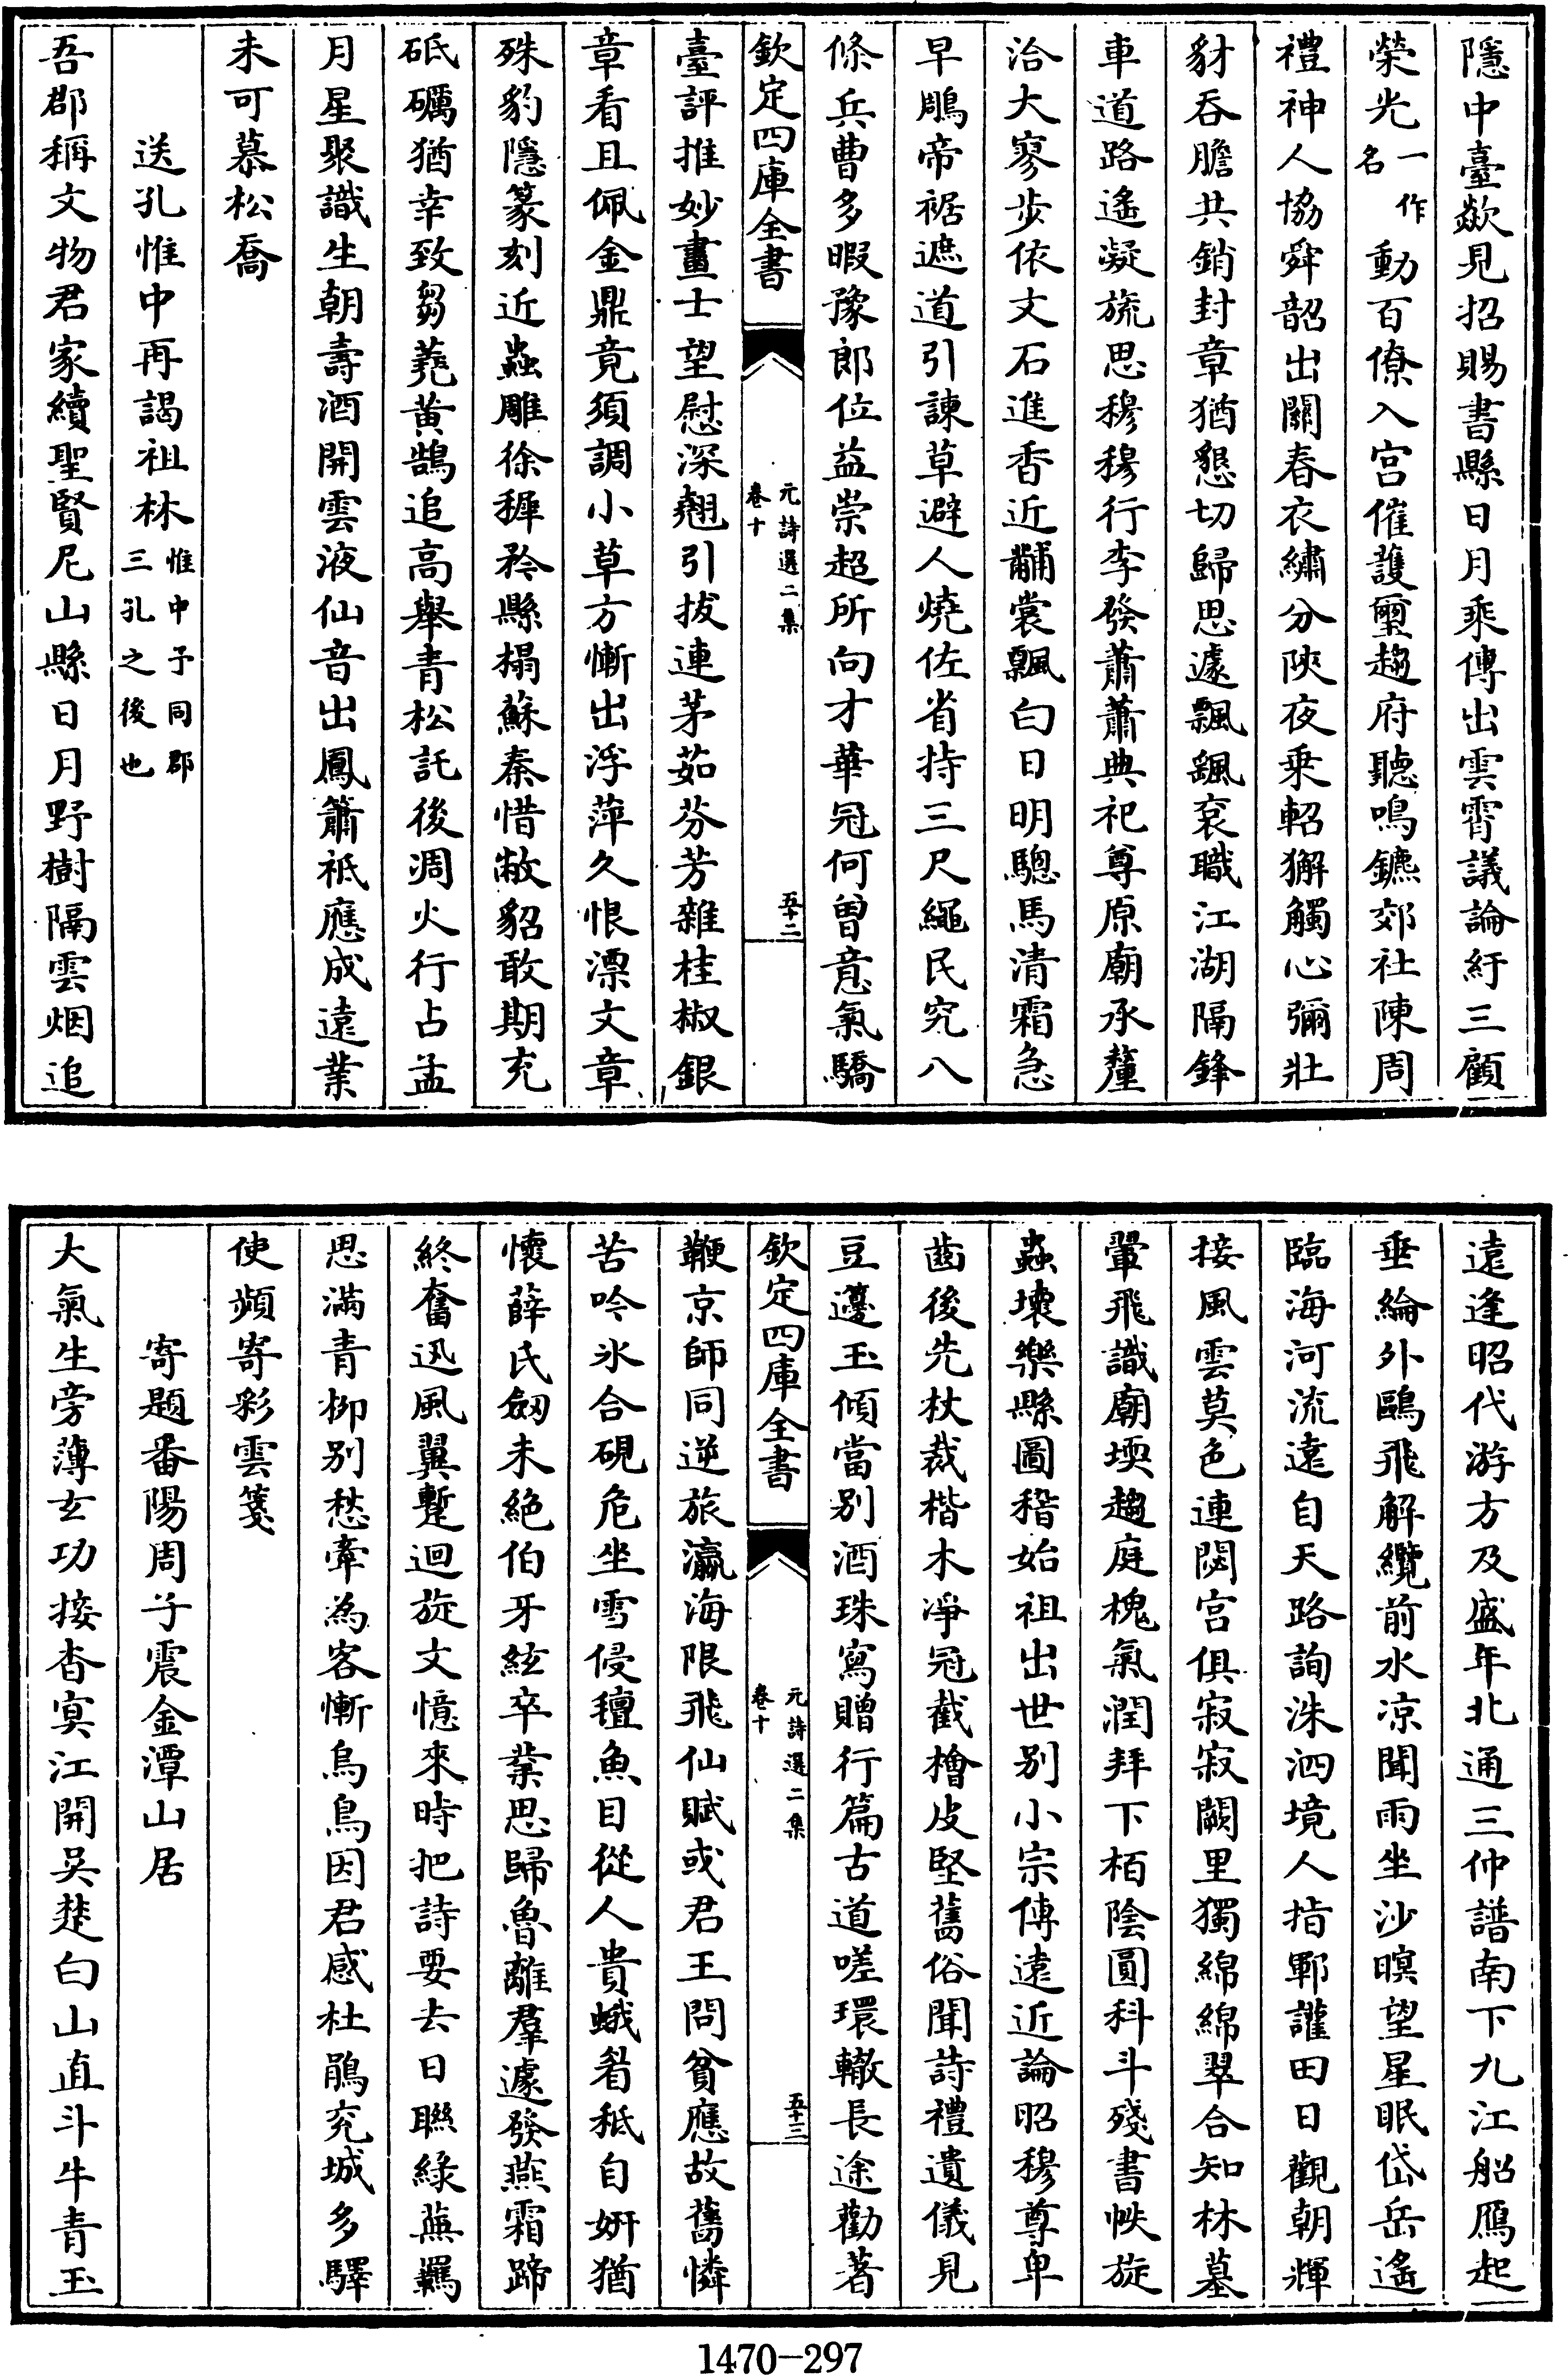 隱中臺歘見招賜書縣日月乘傳出雲霄議論紆三顧
榮光一作名動百僚入宫催護璽趨府聽鳴鑣郊社陳周
禮神人協舜韶出關春衣繡分陜夜乗軺獬觸心彌壯
豺吞膽共銷封章猶懇切歸思遽飄飖袞職江湖隔鋒
車道路遙凝旒思穆穆行李發蕭蕭典祀尊原廟承釐
洽大寥歩依文石進香近黼裳飄白日明驄馬清霜急
早鵰帝裾遮道引諫草避人燒佐省持三尺繩民究八
條兵曹多暇豫郎位益崇超所向才華冠何曾意氣驕
欽定四庫全書
元詩選二集
卷十
五十二
臺評推妙畫士望慰深翹引拔連茅茹芬芳雜桂椒銀
章看且佩金鼎竟須調小草方慚出浮萍久恨漂文章
殊豹隱篆刻近蟲雕徐穉矜縣榻蘇秦惜敝貂敢期充
砥礪猶幸致芻蕘黄鵠追高舉青松託後凋火行占孟
月星聚識生朝壽酒開雲液仙音出鳳簫祗應成遠業
未可慕松喬
送孔惟中再謁祖林惟中子同郡三孔之後也
吾郡稱文物君家續聖賢尼山縣日月野樹隔雲烟追
遠逢昭代游方及盛年北通三仲譜南下九江船鴈起
垂綸外鷗飛解纜前水凉聞雨坐沙暝望星眠岱岳遙
臨海河流遠自天路詢洙泗境人指鄆讙田日觀朝輝
接風雲莫色連閟宫俱寂寂闕里獨綿綿翠合知林墓
翬飛識廟堧趨庭槐氣潤拜下栢陰圓科斗殘書帙旋
蟲壞樂縣圖稽始祖出世别小宗傳遠近論昭穆尊卑
齒後先杖裁楷木凈冠截檜皮堅舊俗聞詩禮遺儀見
豆籩玉傾當别酒珠寫贈行篇古道嗟環轍長途勸著
欽定四庫全書
元詩選二集
卷十
五十三
鞭京師同逆旅瀛海限飛仙賦或君王問貧應故舊憐
苦吟氷合硯危坐雪侵氊魚目從人貴蛾眉秪自妍猶
懷薛氏劒未絶伯牙絃卒業思歸魯離羣遽發燕霜蹄
終奮迅風翼蹔迴旋文憶來時把詩要去日聯綠蕪羈
思滿青栁别愁牽為客慚烏鳥因君感杜鵑兖城多驛
使頻寄彩雲箋
寄題番陽周子震金潭山居
大氣生旁薄玄功接杳㝠江開吴楚白山直斗牛青玉
1470-297